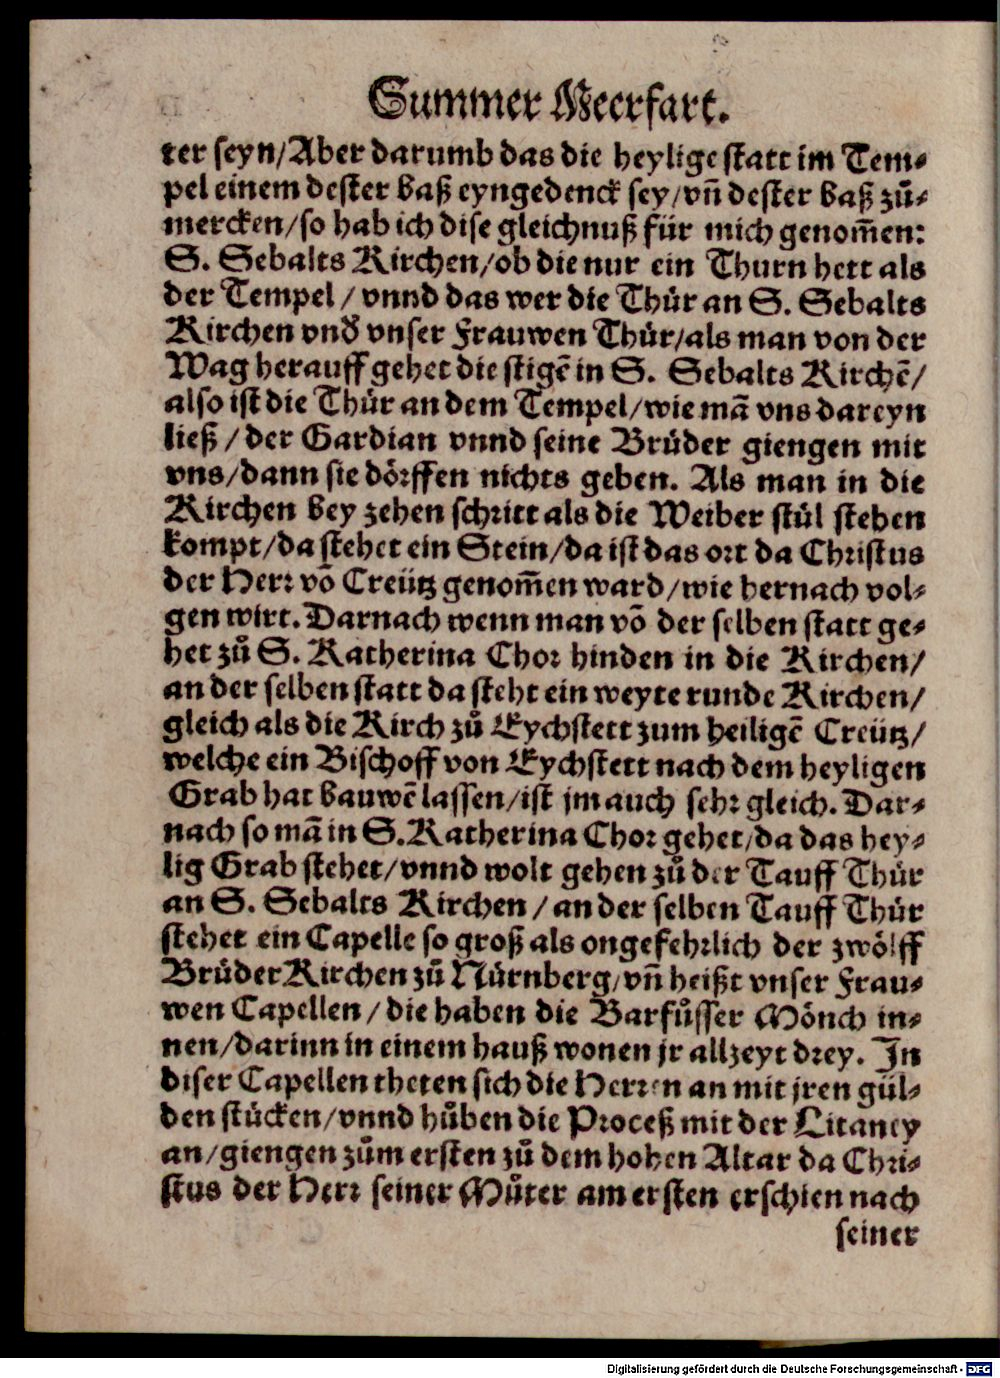 Summer Meerfart.
ter seyn/Aber darumb das die heylige statt im Tem⸗
pel einem dester baß eyngedenck sey/vñ dester baß zů⸗
mercken/so hab ich dise gleichnuß für mich genom̃en:
S. Sebalts Kirchen/ob die nur ein Thurn hett als
der Tempel / vnnd das wer die Thür an S. Sebalts
Kirchen vnd vnser Frauwen Thür/als man von der
Wag herauff gehet die stigẽ in S. Sebalts Kirchẽ/
also ist die Thür an dem Tempel/wie mã vns dareyn
ließ / der Gardian vnnd seine Brüder giengen mit
vns/dann sie dörffen nichts geben. Als man in die
Kirchen bey zehen schritt als die Weiber stül stehen
kompt/da stehet ein Stein/da ist das ort da Christus
der Herr võ Creütz genom̃en ward/wie hernach vol⸗
gen wirt. Darnach wenn man võ der selben statt ge⸗
het zů S. Katherina Chor hinden in die Kirchen/
an der selben statt da steht ein weyte runde Kirchen/
gleich als die Kirch zů Eychstett zum heiligẽ Creütz/
welche ein Bischoff von Eychstett nach dem heyligen
Grab hat bauwẽ lassen/ist jm auch sehr gleich. Dar⸗
nach so mã in S. Katherina Chor gehet/da das hey⸗
lig Grab stehet/vnnd wolt gehen zů der Tauff Thür
an S. Sebalts Kirchen / an der selben Tauff Thür
stehet ein Capelle so groß als ongefehrlich der zwölff
Brüder Kirchen zů Nürnberg/vñ heißt vnser Frau⸗
wen Capellen / die haben die Barfůsser Mönch in⸗
nen/darinn in einem hauß wonen jr allzeyt drey. In
diser Capellen theten sich die Herren an mit jren gül⸗
den stücken/vnnd hůben die Proceß mit der Litaney
an/giengen zům ersten zů dem hohen Altar da Chri⸗
stus der Herr seiner Můter am ersten erschien nach
seiner
Digitalisierung gefördert durch die Deutsche Forschungsgemeinschaft - DFG